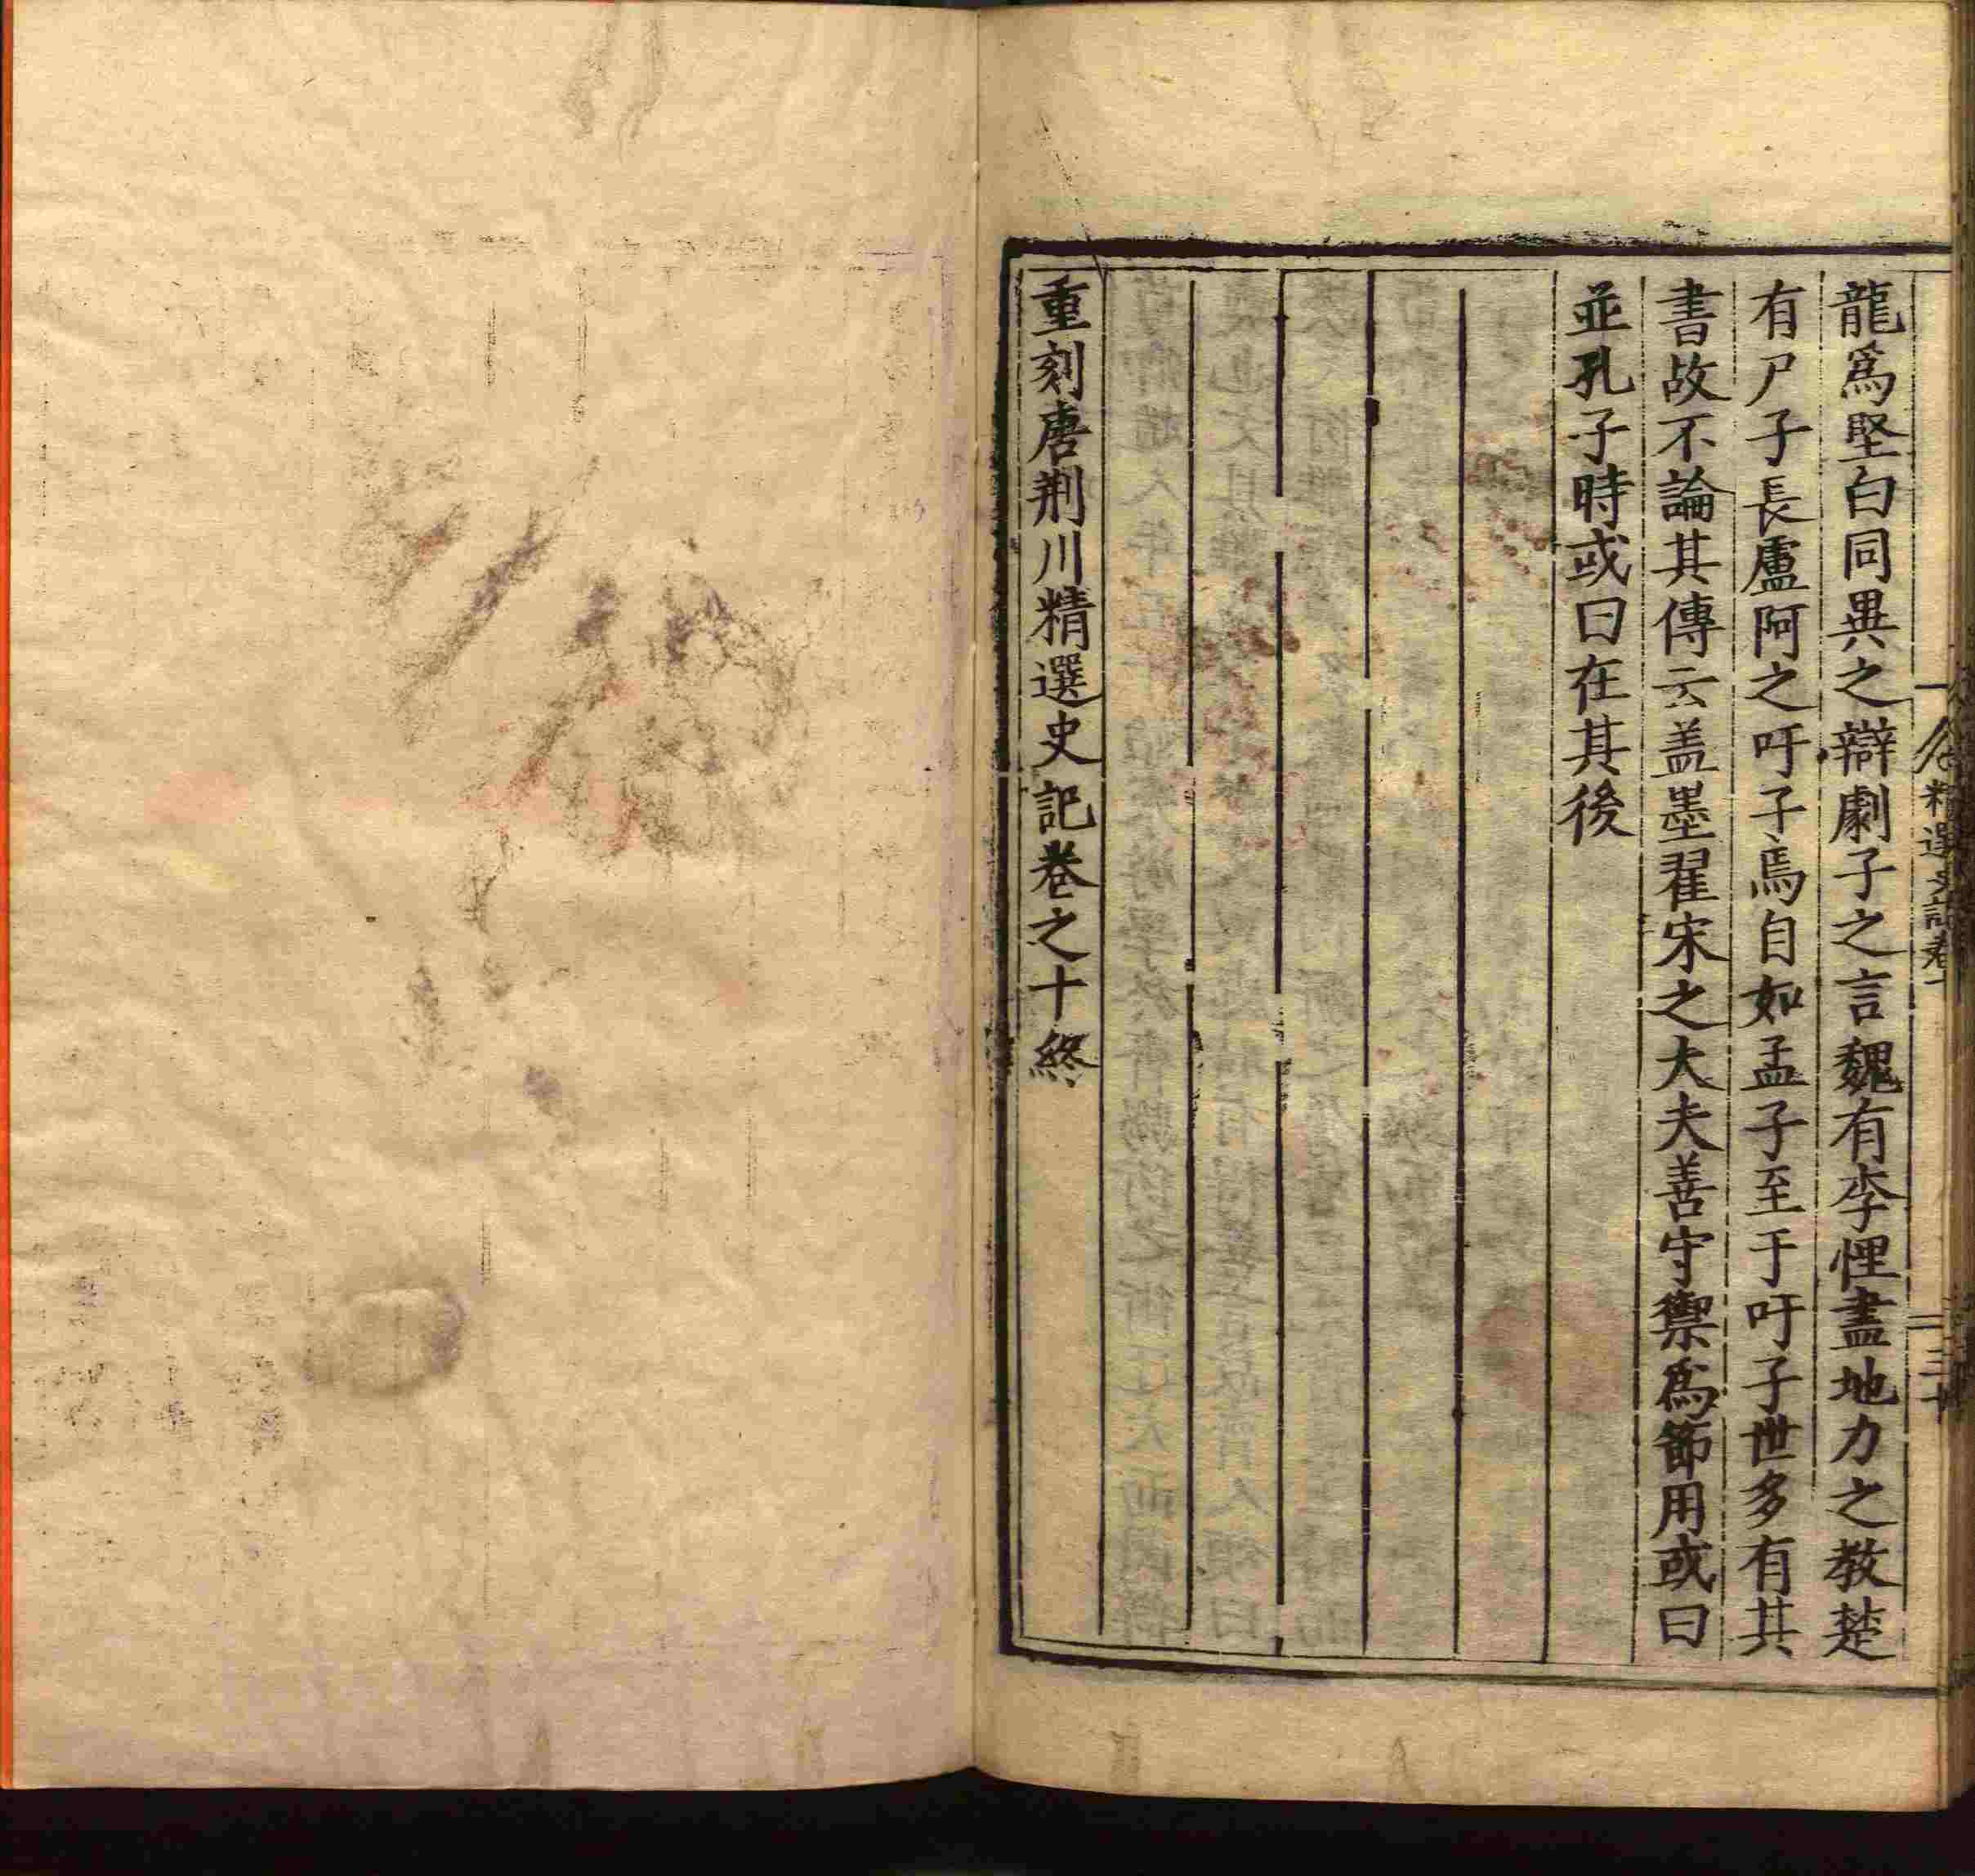 龍爲堅白同異之辯劇子之言魏有李悝盡地力之教楚
有尸子長盧阿之吁子焉自如孟子至于吁子世多有其
書故不論其傳云盖墨翟宋之大夫善守禦爲節用或曰
並孔子時或曰在其後
重刻唐荆川精選史記卷之十終
精選史記卷十